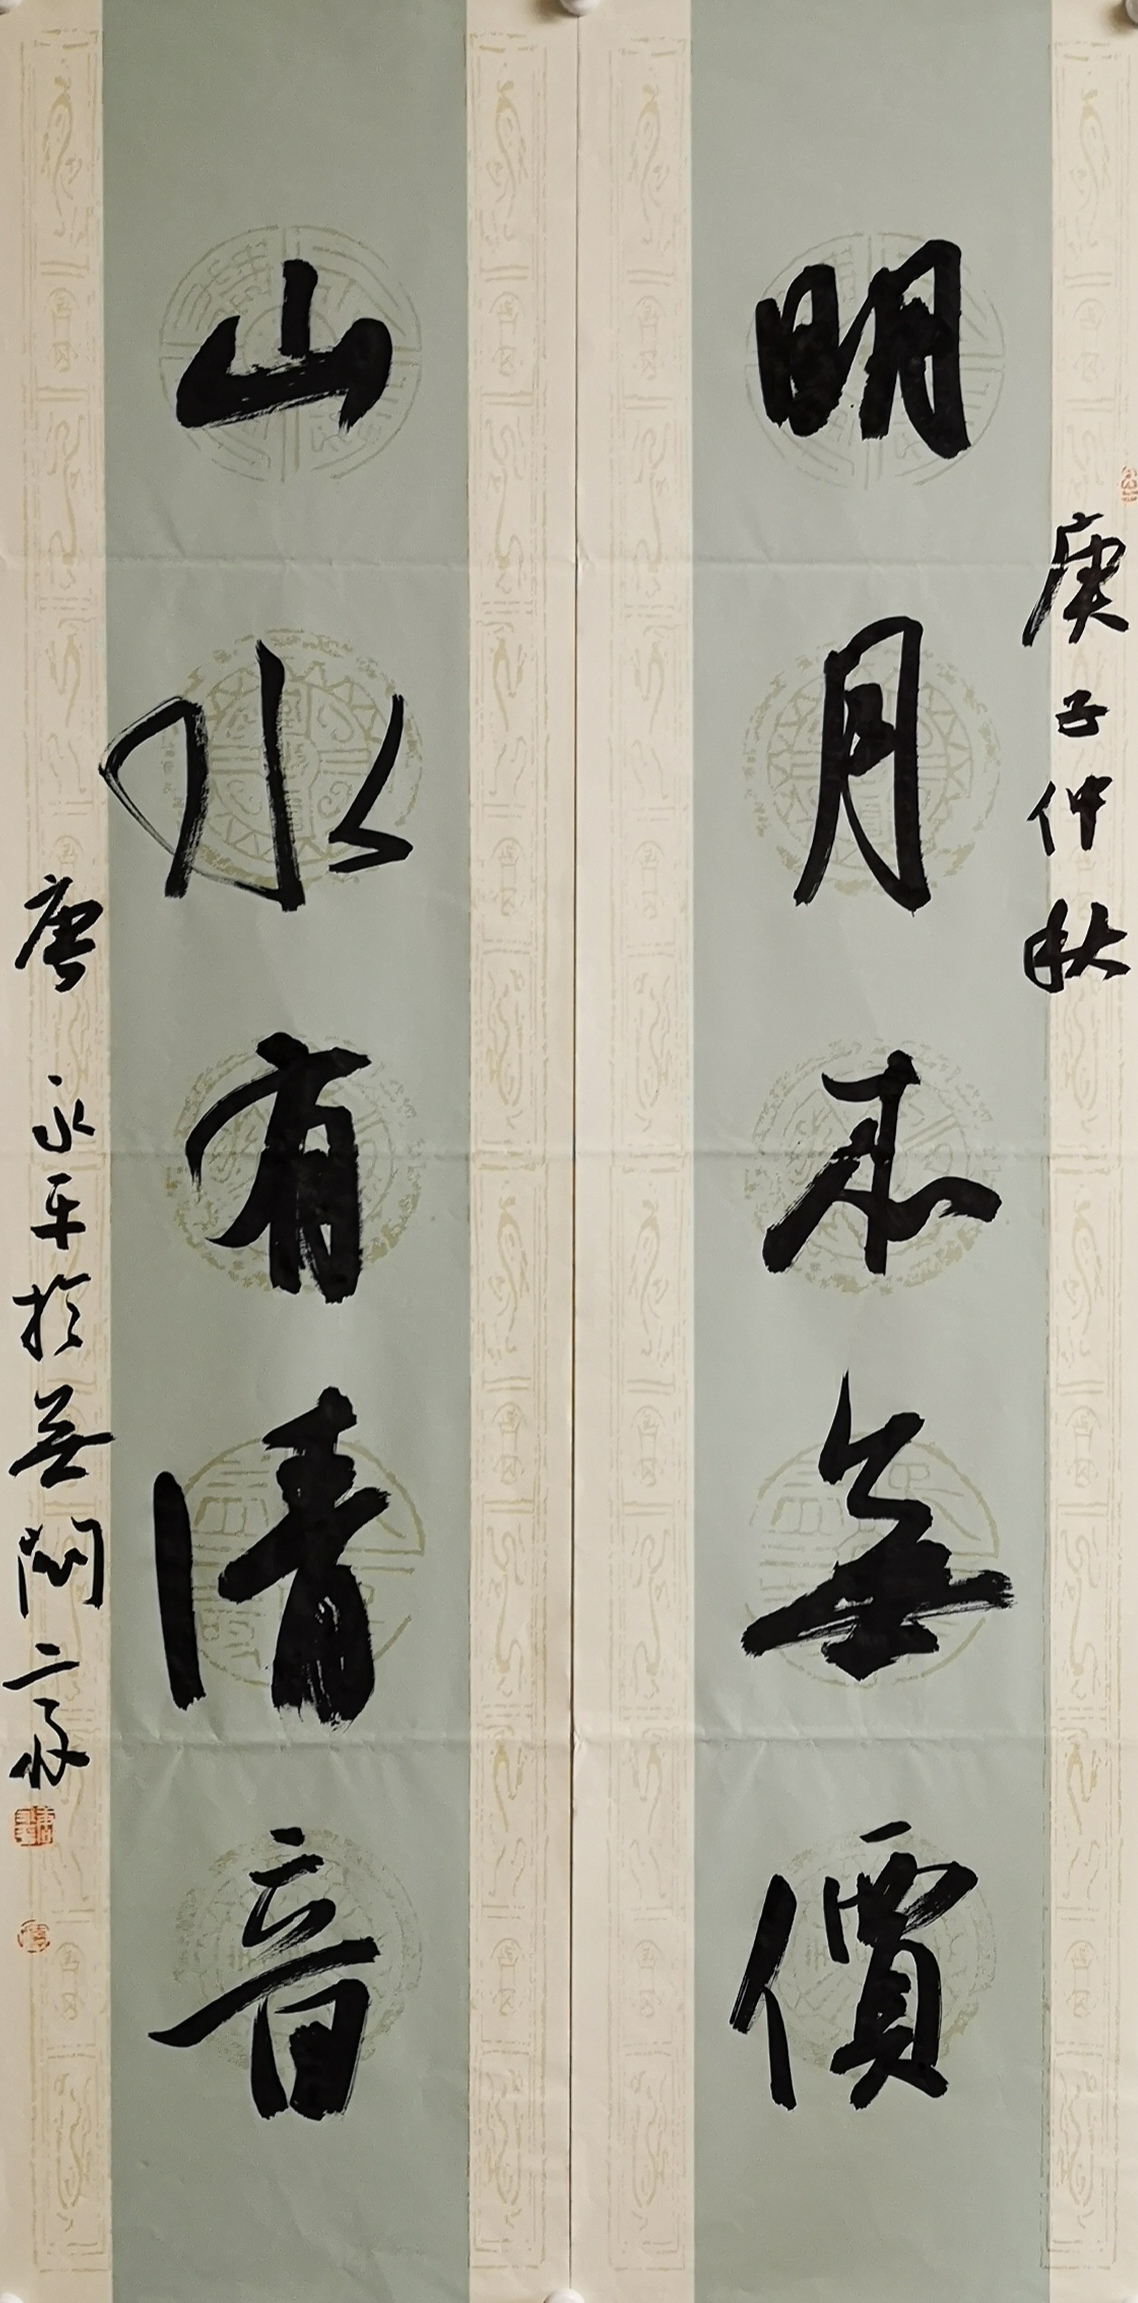 庚子仲秋
明月本無價
山水有清音
唐永平於無閑齋